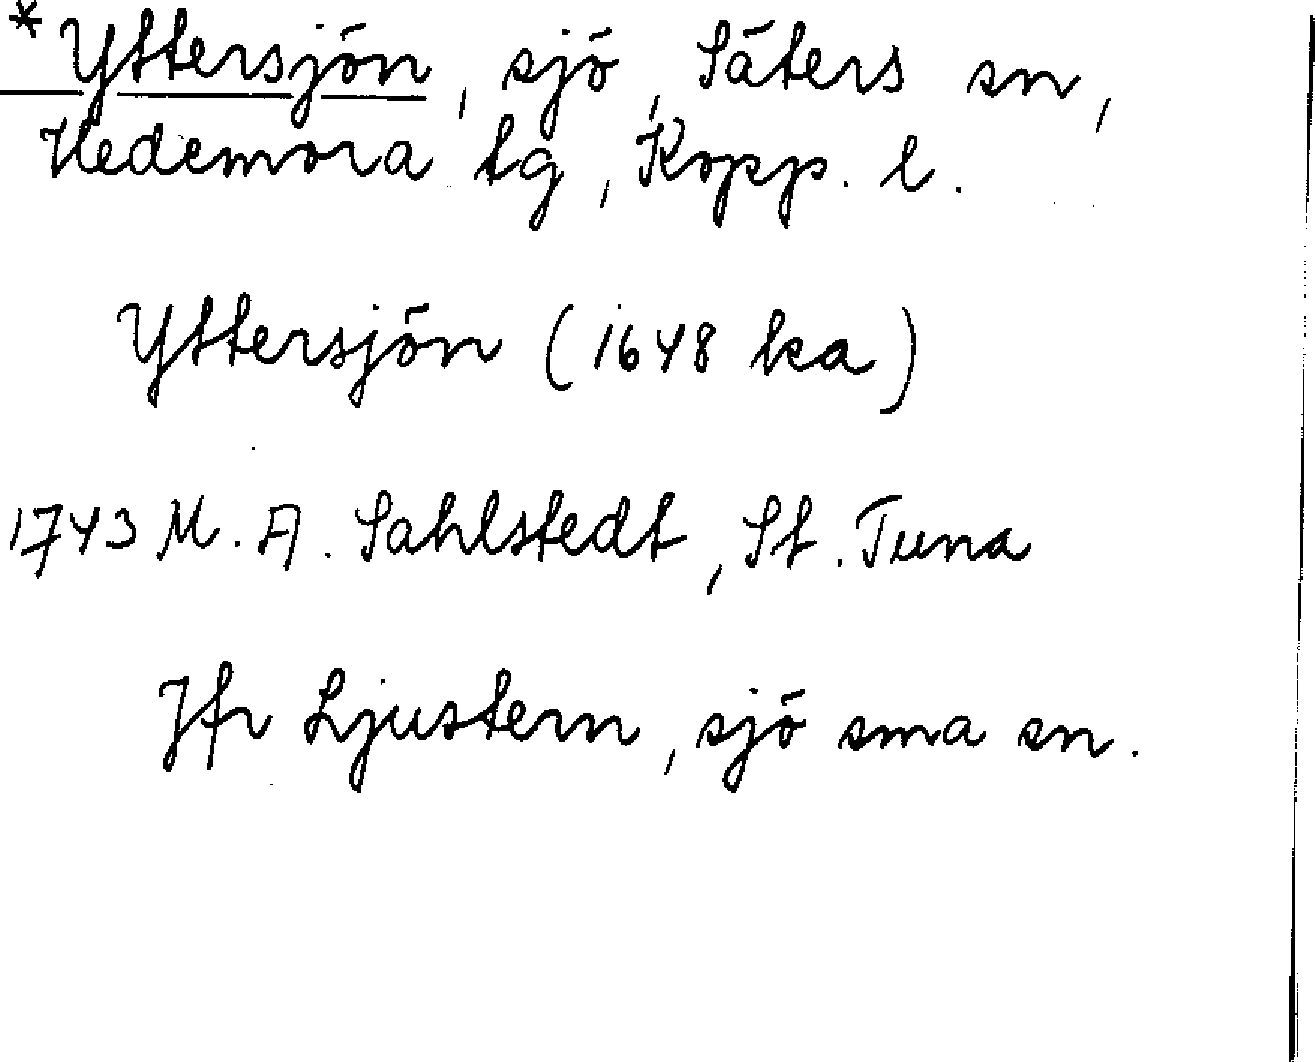 *Yttersjön, sjö, Säters sn,
Hedemora tg, Kopp. l.
Yttersjön (1648 ka)
1743 M. A. Sahlstedt, St. Tuna
Jfr Ljustern, sjö sma sn.